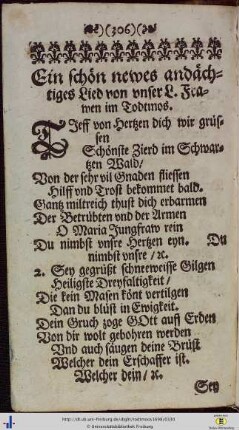 )(306)(
Ein schön newes andäch-
tiges Lied von vnser L. Fra-
wen im Todtmos.
Tieff von Hertzen dich wir grüs-
sen
Schönste Zierd im Schwar-
tzen Wald/
Von der sehr vil Gnaden fliessen
Hilff vnd Trost bekommet bald.
Gantz miltreich thust dich erbarmen
Der Betrübten vnd der Armen
O Maria Jungfraw rein
Du nimbst vnsre Hertzen eyn. Du
nimbst vnsre / ꝛc.
2. Sey gegrüßt schneeweisse Gilgen
Heiligste Dreyfaltigkeit /
Die kein Masen könt vertilgen
Dan du blüst in Ewigkeit.
Dein Gruch zoge GOtt auff Erden
Von dir wolt gebohren werden
Vnd auch säugen deine Brüst
Welcher dein Erschaffer ist.
Welcher dein / ꝛc.
Sey
© Universitätsbibliothek Freiburg